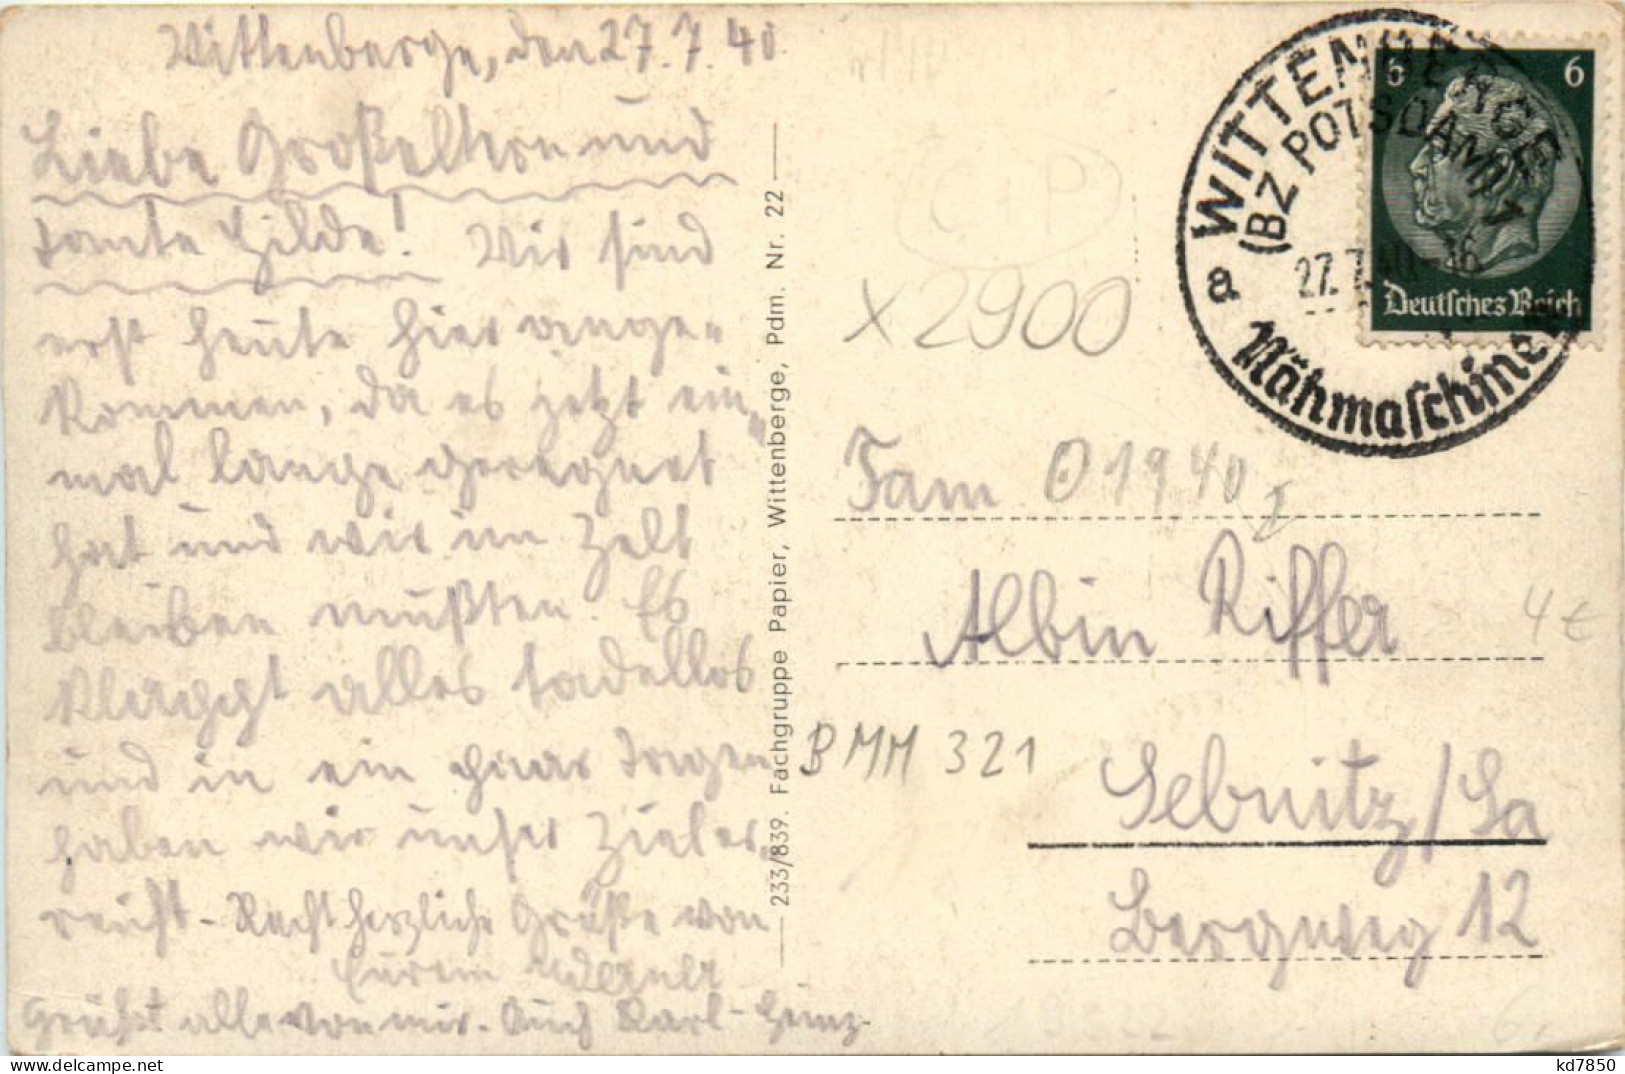 Wittenberge, den 27.7.40
Liebe Großeltern und
Tante Hilde! Wir sind
erst heute hier ange-
kommen, da es jetzt ein-
mal lange geregnet
hat und wir im Zelt
bleiben mußten. Es
klappt alles tadellos
und in ein paar Tagen
haben wir unser Ziel er-
reicht - Recht herzliche Grüße von
Eurem Werner
Grüßt alle von mir. Auch Karl-Heinz.
233/839. Fachgruppe Papier, Wittenberge, Pdm. Nr. 22
WITTENBERGE
(BZ POTSDAM) 1
a
27.7.40-16
Nähmaschinen
6 6
Deutsches Reich
C+P
x 2900
Fam 01940
Albin Riffer
4 €
BMM 321
Sebnitz/Sa
Bergweg 12
6.
kd7850